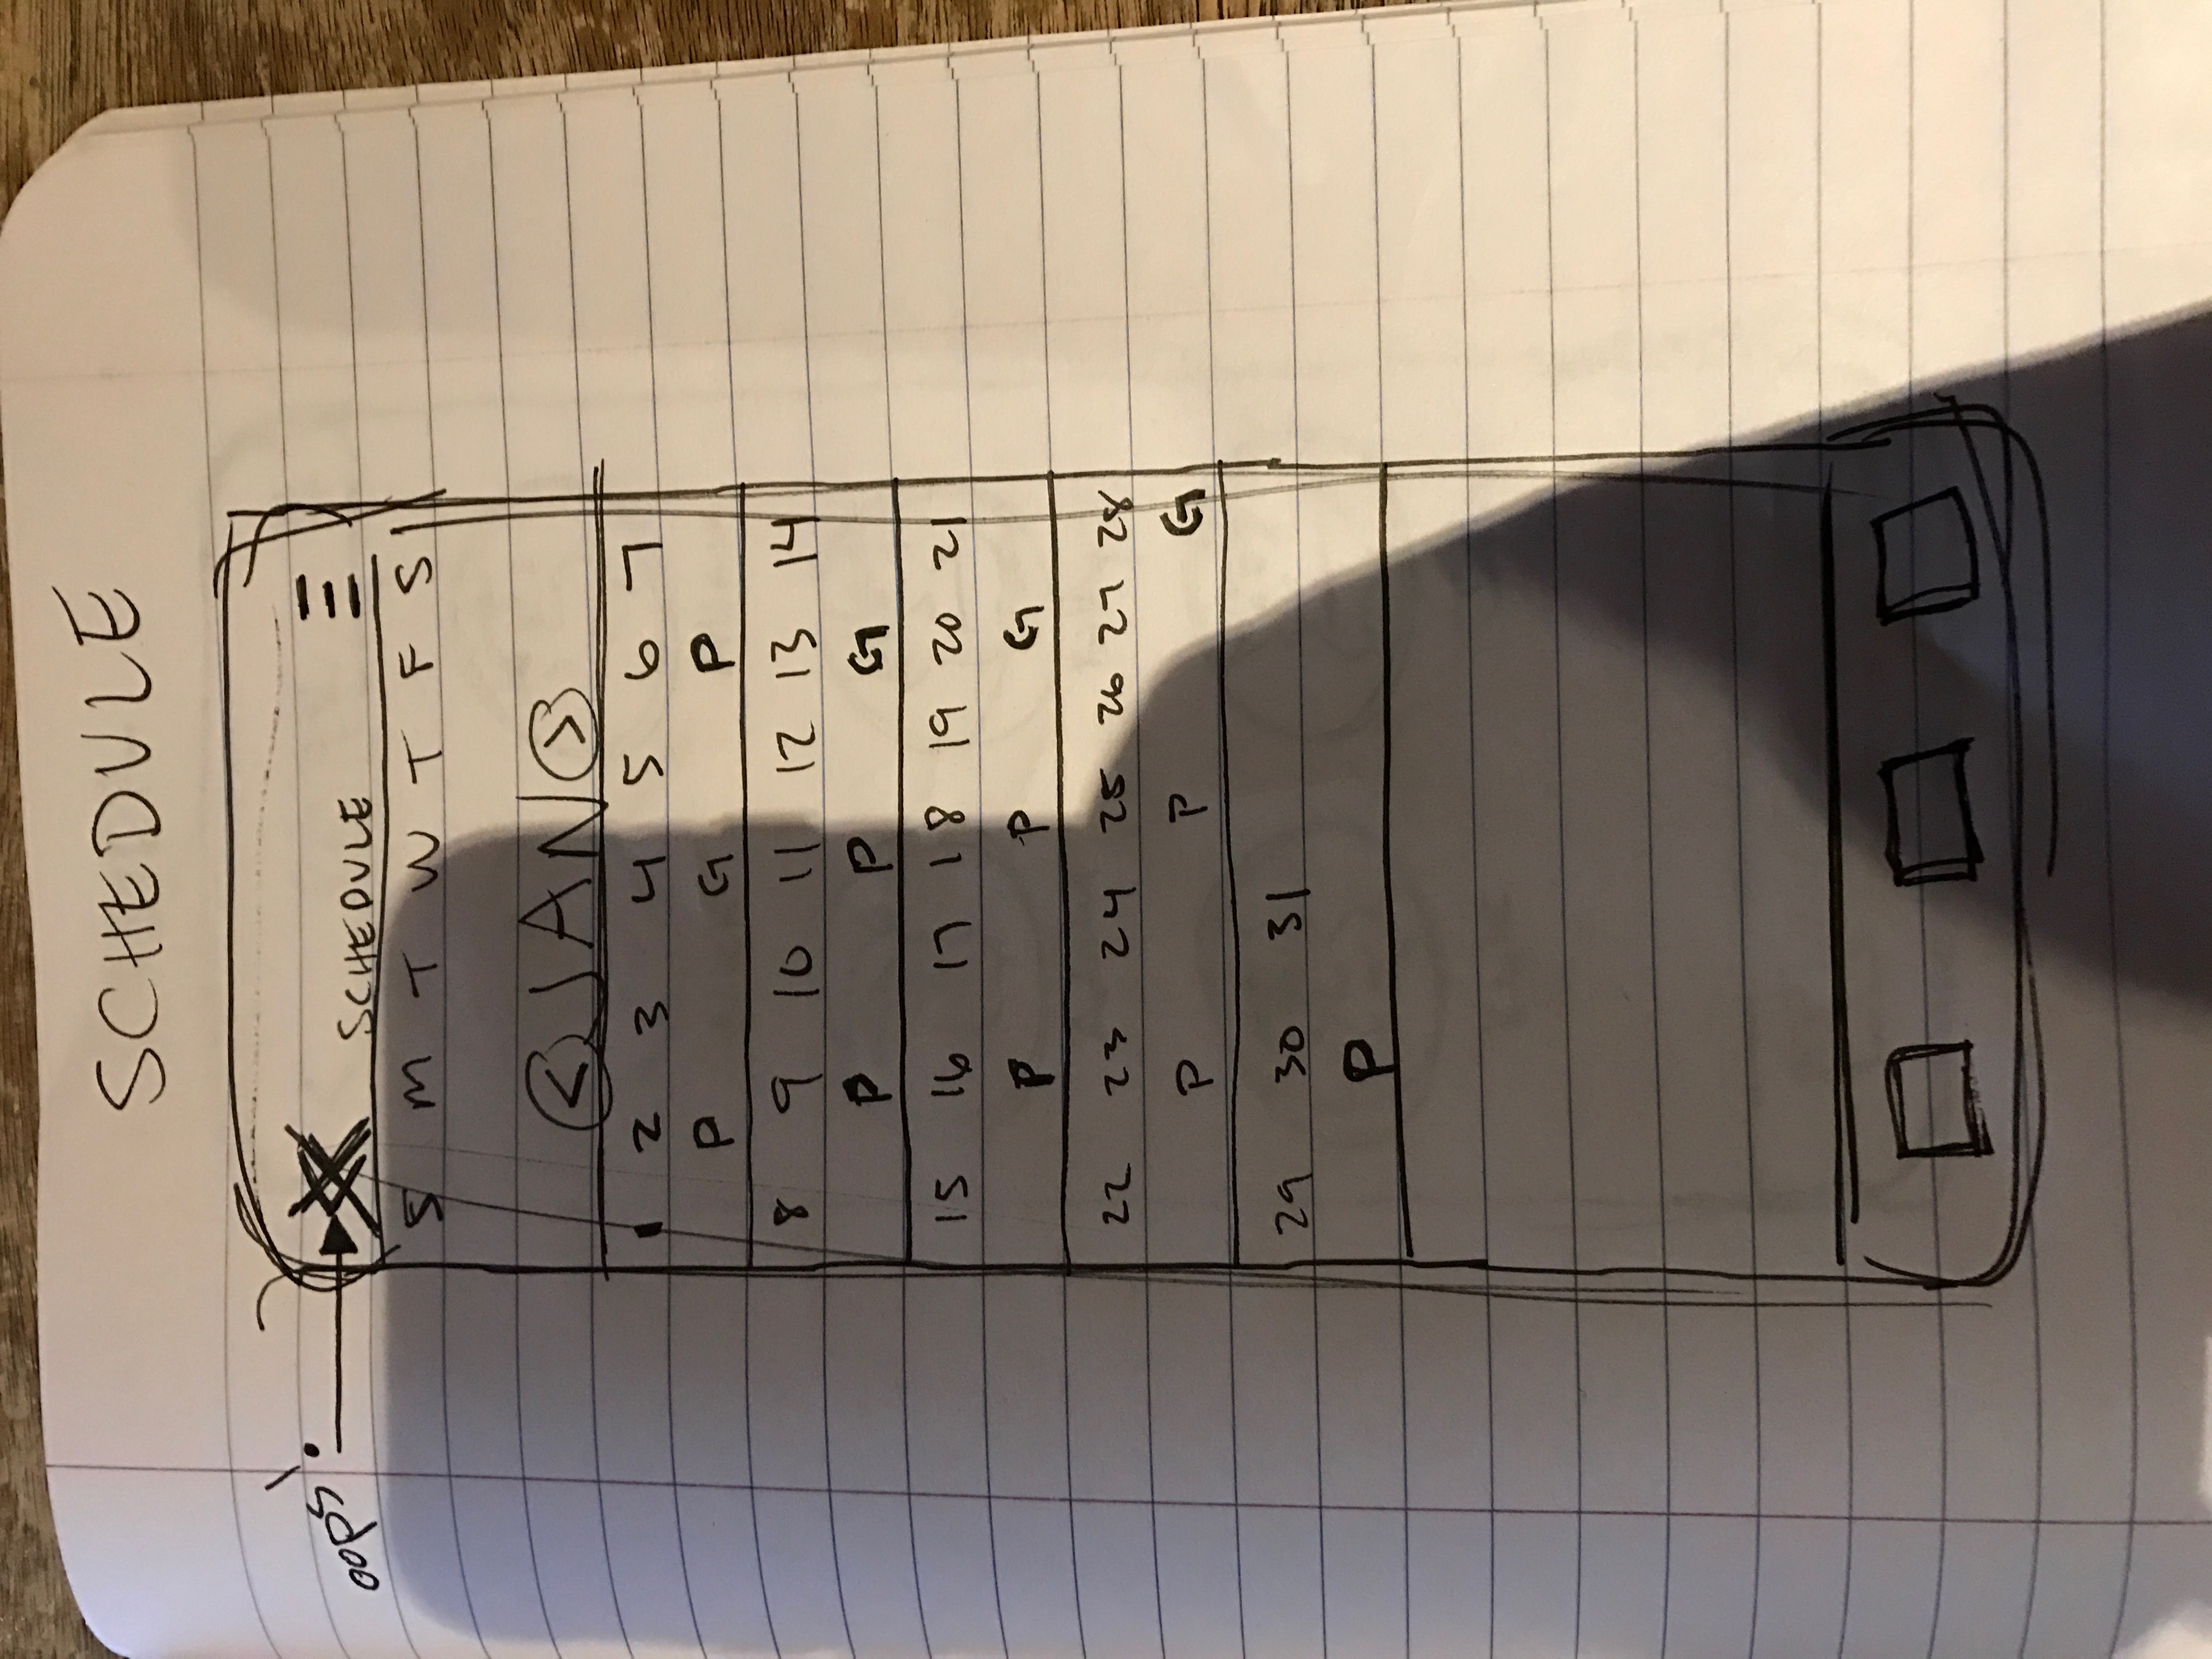 SCHEDULE
oops!
SCHEDULE
S M T W T F S
< JAN >
1 2 3 4 5 6 7
P G P
8 9 10 11 12 13 14
P P G
15 16 17 18 19 20 21
P P G
22 23 24 25 26 27 28
P P G
29 30 31
P